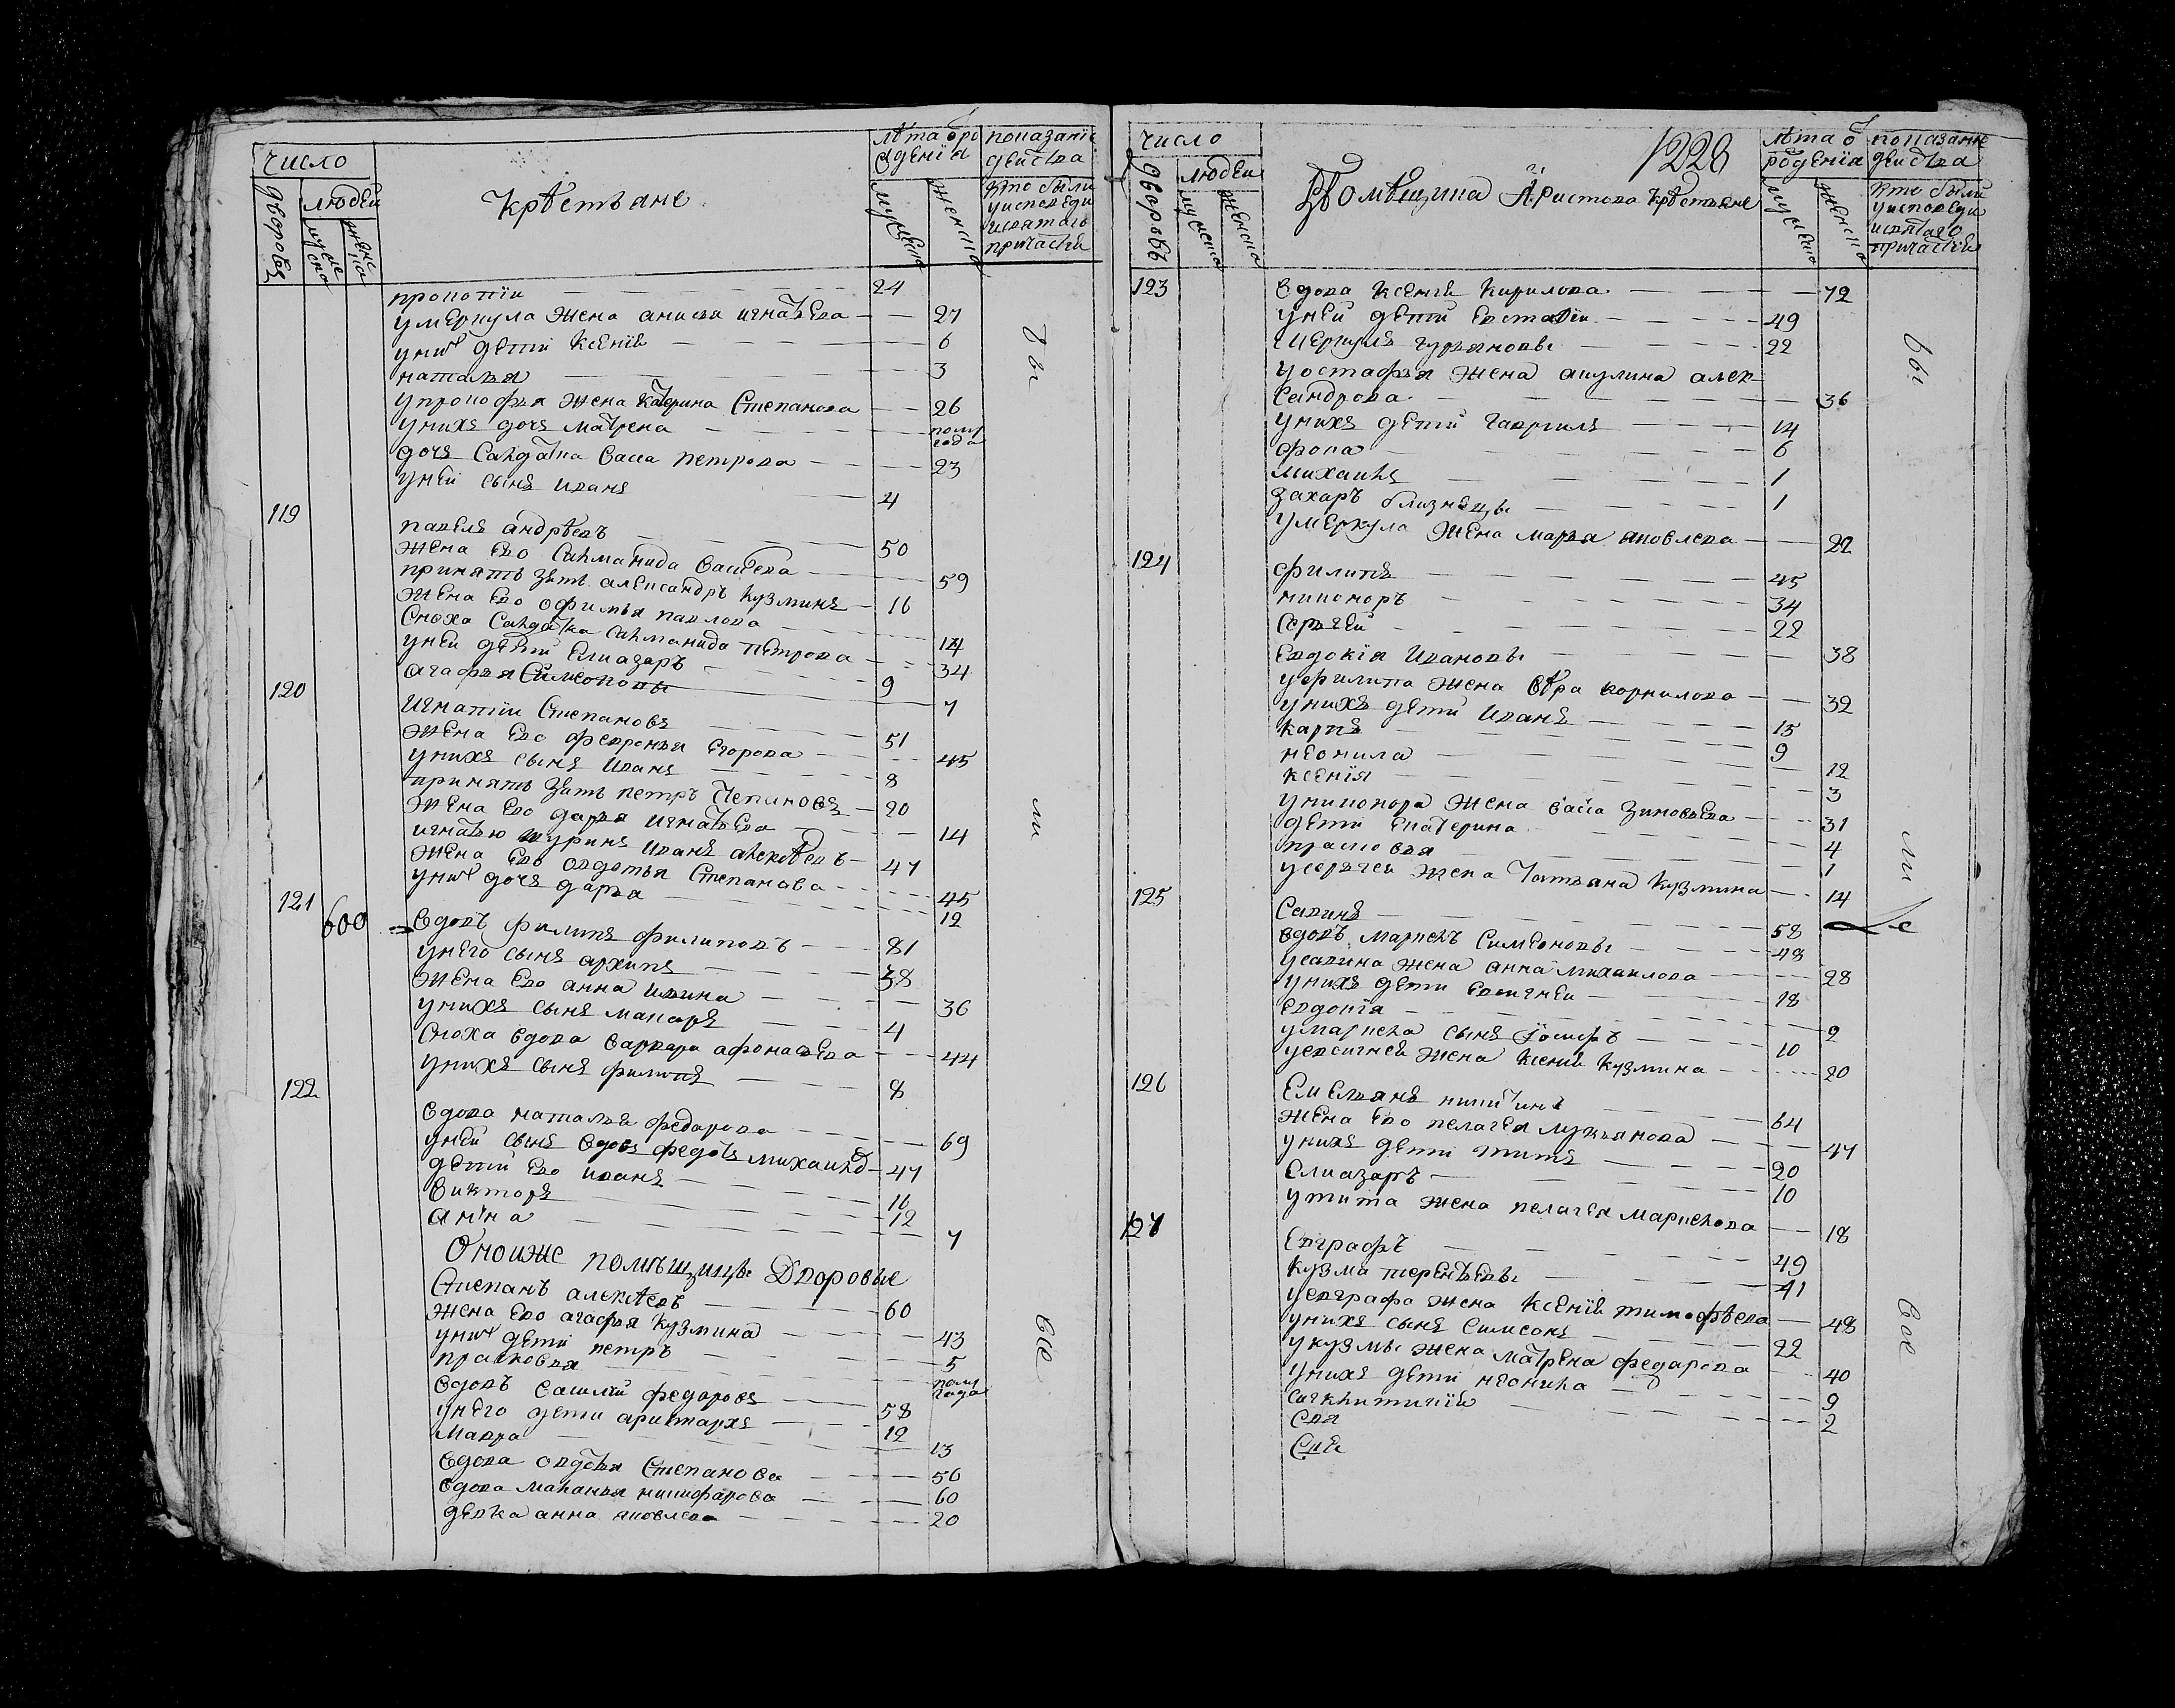 число
дворовъ
людей
мужеска
женска
крѣстьяне
лѣта о рождения
мужеска
женска
показание действа
кто были у исповеди и святаго причастия
прокопии 24
умеркула жена анисья игнатьева 27
уних дети ксения 6
наталья 3
упрокофья жена катерина степанова 26
унихъ дочь матрена полугода
дочь салдатка васса петрова 23
уней сынъ иванъ 4
119
павелъ андрѣевъ 50
жена ево саламанида васильева 59
принятъ зять александръ кузминъ 16
жена ево офимья павлова 14
сноха салдатка саламанида петрова 34
уней дети елиазаръ 9
агафья симеоновы 7
120
игнатии степановъ 51
жена ево февронья егорова 45
унихъ сынъ иванъ 8
принятъ зять петръ степановъ 20
жена ево дарья игнатьева 14
игнатью шуринъ иванъ алексѣевъ 47
жена ево овдотья степанова 45
уних дочь дарья 12
121 600
вдовъ филипъ филиповъ 81
унего сынъ архипъ 38
жена ево анна ивина 36
унихъ сынъ макаръ 4
сноха вдова варвара афонасьева 44
унихъ сынъ филипъ 8
122
вдова наталья федарова 69
уней сынъ вдовъ федотъ михаиловъ 47
дети ево иванъ 16
викторъ 12
анна 7
Оноиже помѣщицы Дворовые
степанъ алексѣевъ 60
жена ево агафья кузмина 43
уних дети петръ 5
прасковья полугода
вдовъ василии федаровъ 58
унего дети аристархъ 12
мавра 13
вдова овдотья степанова 50
вдова маланья никифарова 60
девка анна яковлева 20
бы
ли
все
число
дворовъ
людей
мужеска
женска
1228
Помѣщика Аристова крѣстьяне
лѣта о рождения
мужеска
женска
показание действа
кто были у исповеди и святаго причастия
123 вдова ксения кирилова 72
уней дети евстафии 49
меркулъ гурьяновы 22
уостафья жена акулина алек-
сандрова 36
унихъ дети гаврилъ 14
фока 6
михаилъ 1
захаръ близнецы 1
умеркула жена марья яковлева 22
124 филипъ 45
никоноръ 34
сергей 22
евдокия ивановы 38
уфилипа жена вѣра корнилова 32
унихъ дети иванъ 15
карпъ 9
неонила 12
ксения 3
униконора жена васса зиновьева 31
дети екатерина 4
прасковья 1
усергея жена татьяна кузмина 14
125 савинъ 58
вдовъ маркелъ симеоновы 48
усавина жена анна михаилова 28
унихъ дети евсигнеи 18
евдокия 2
умаркела сынъ иосифъ 10
уевсигнея жена ксения кузмина 20
126 емельянъ никитинъ 64
жена ево пелагея лукьянова 47
унихъ дети титъ 20
елиазаръ 10
утита жена пелагея маркелова 18
127 евграфъ 49
кузма терентьевы 41
уевграфа жена ксения тимофѣева 48
унихъ сынъ симеонъ 22
укузмы жена матрена федарова 40
унихъ дети неонила 9
2
бы
ли
все